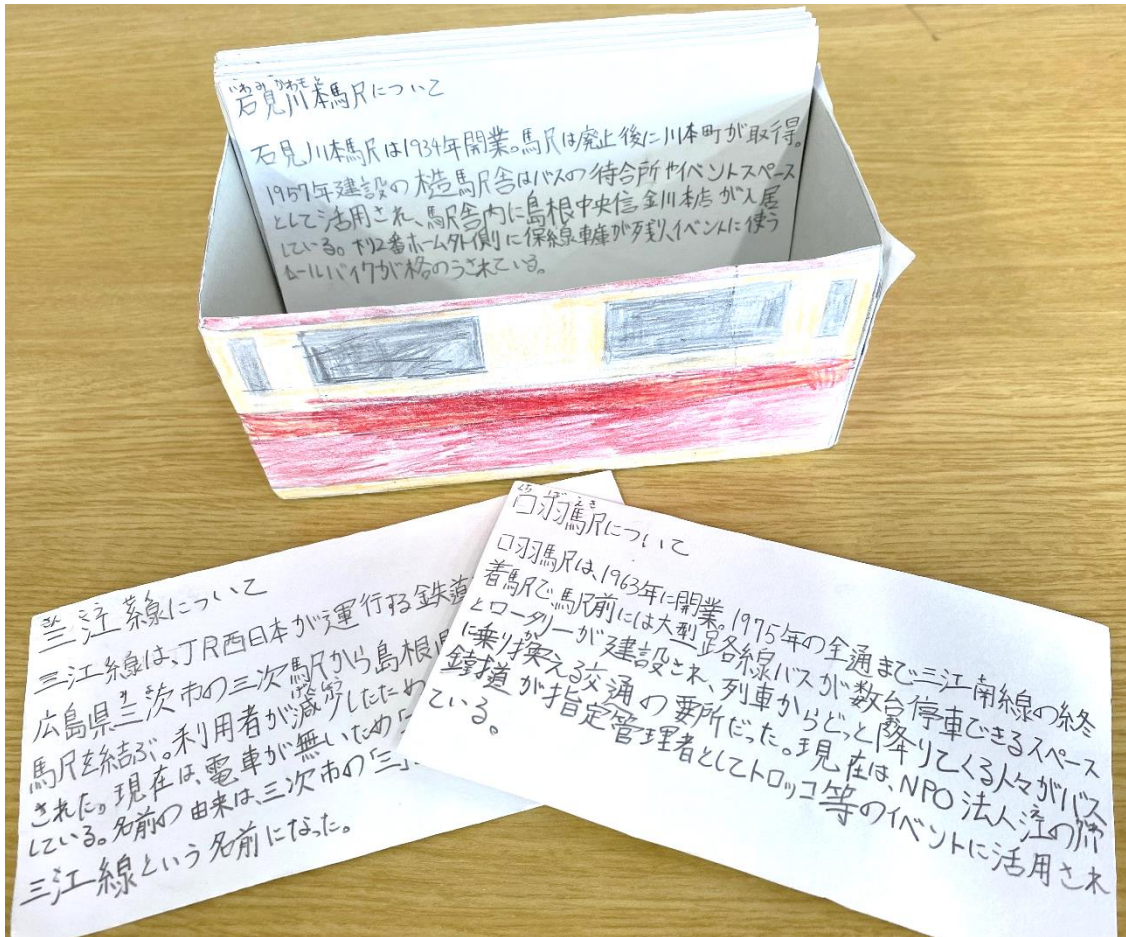 いわみかわもと
石見川本駅について
石見川本駅は1934年開業。駅は廃止後に川本町が取得。
1957年建設の木造駅舎はバスの待合所やイベントスペース
として活用され、駅舎内に島根中央信金川本店が入居
している。下り2番ホーム外側に保線車庫が残り、イベントに使う
レールバイクが格のうされている。
さん こう
三江線について
三江線は、JR西日本が運行する鉄道
広島県三次市の三次駅から島根県
駅を結ぶ。利用者が減少したため
された。現在は、電車が無いため
している。名前の由来は、三次市の「三」
三江線という名前になった。
くち ば えき
口羽駅について
口羽駅は、1963年に開業。1975年の全通まで三江南線の終
着駅で駅前には大型路線バスが数台停車できるスペース
とロータリーが建設され、列車からどっと降りてくる人々がバス
に乗り換える交通の要所だった。現在は、NPO法人江の川
鐵道が指定管理者としてトロッコ等のイベントに活用され
ている。